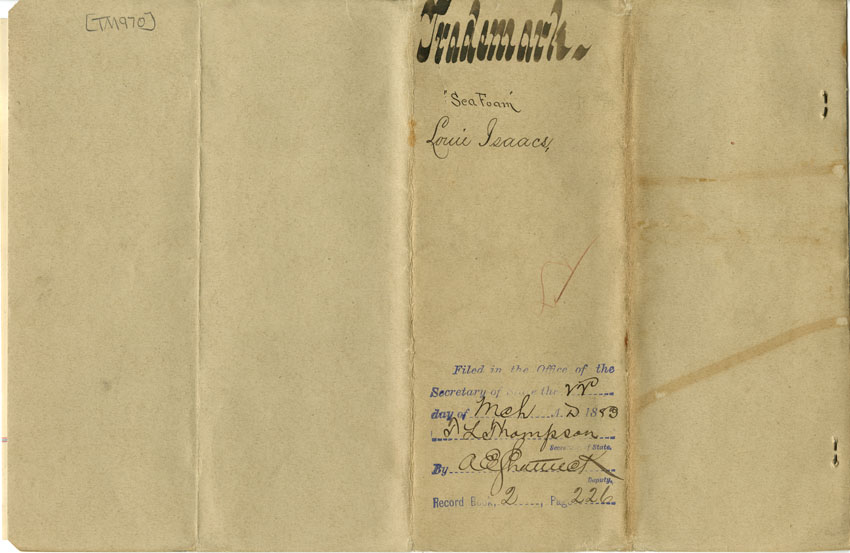 [TM970]
Trademark.
"Sea Foam"
Louis Isaacs,
Filed in the Office of the
Secretary of State the
day of Mch A.D 1883
T L Thompson
Secretary of State.
By A E Shattuck
Deputy.
Record Book, 2, Page 226